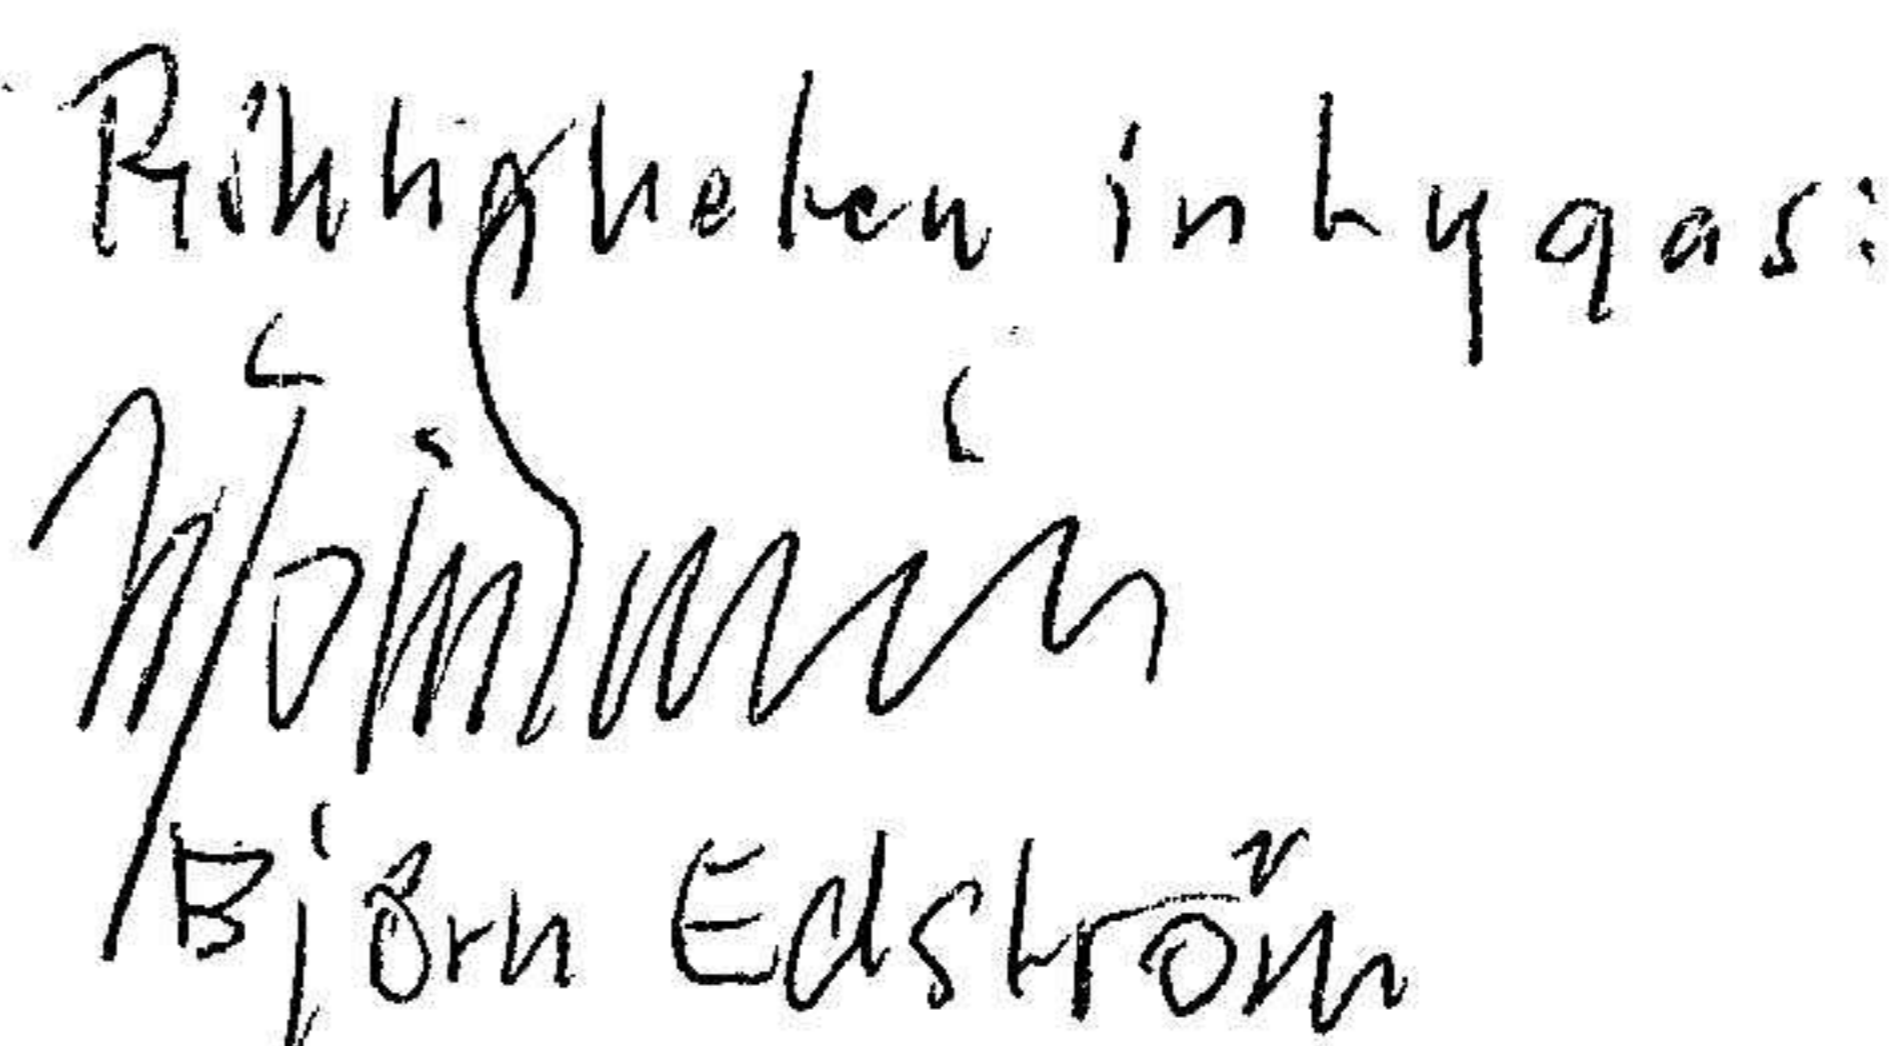 Riktigheten intygas:
Björn Edström